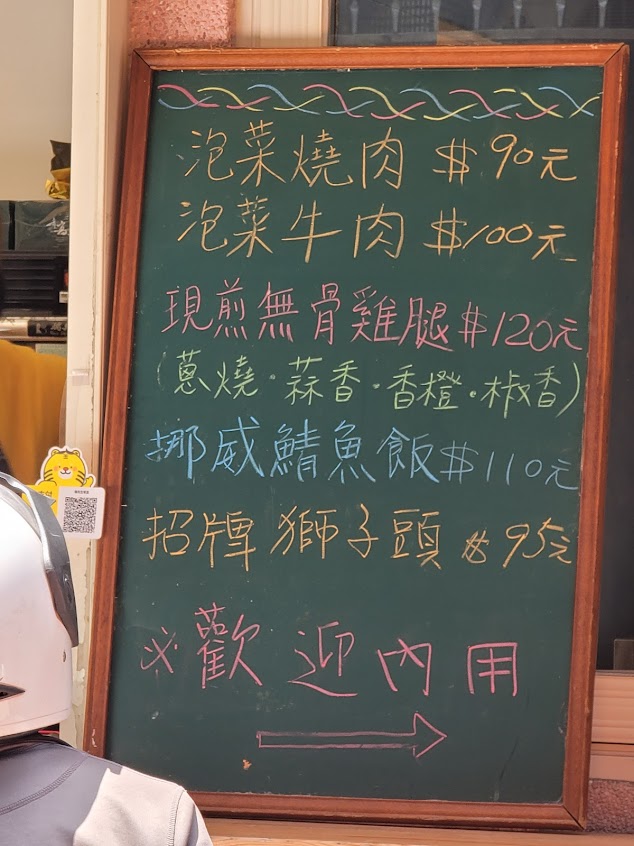 泡菜燒肉 $90元
泡菜牛肉 $100元
現煎無骨雞腿 $120元
(蔥燒·蒜香·香橙·椒香)
挪威鯖魚飯 $110元
招牌獅子頭 $95元
※歡迎內用